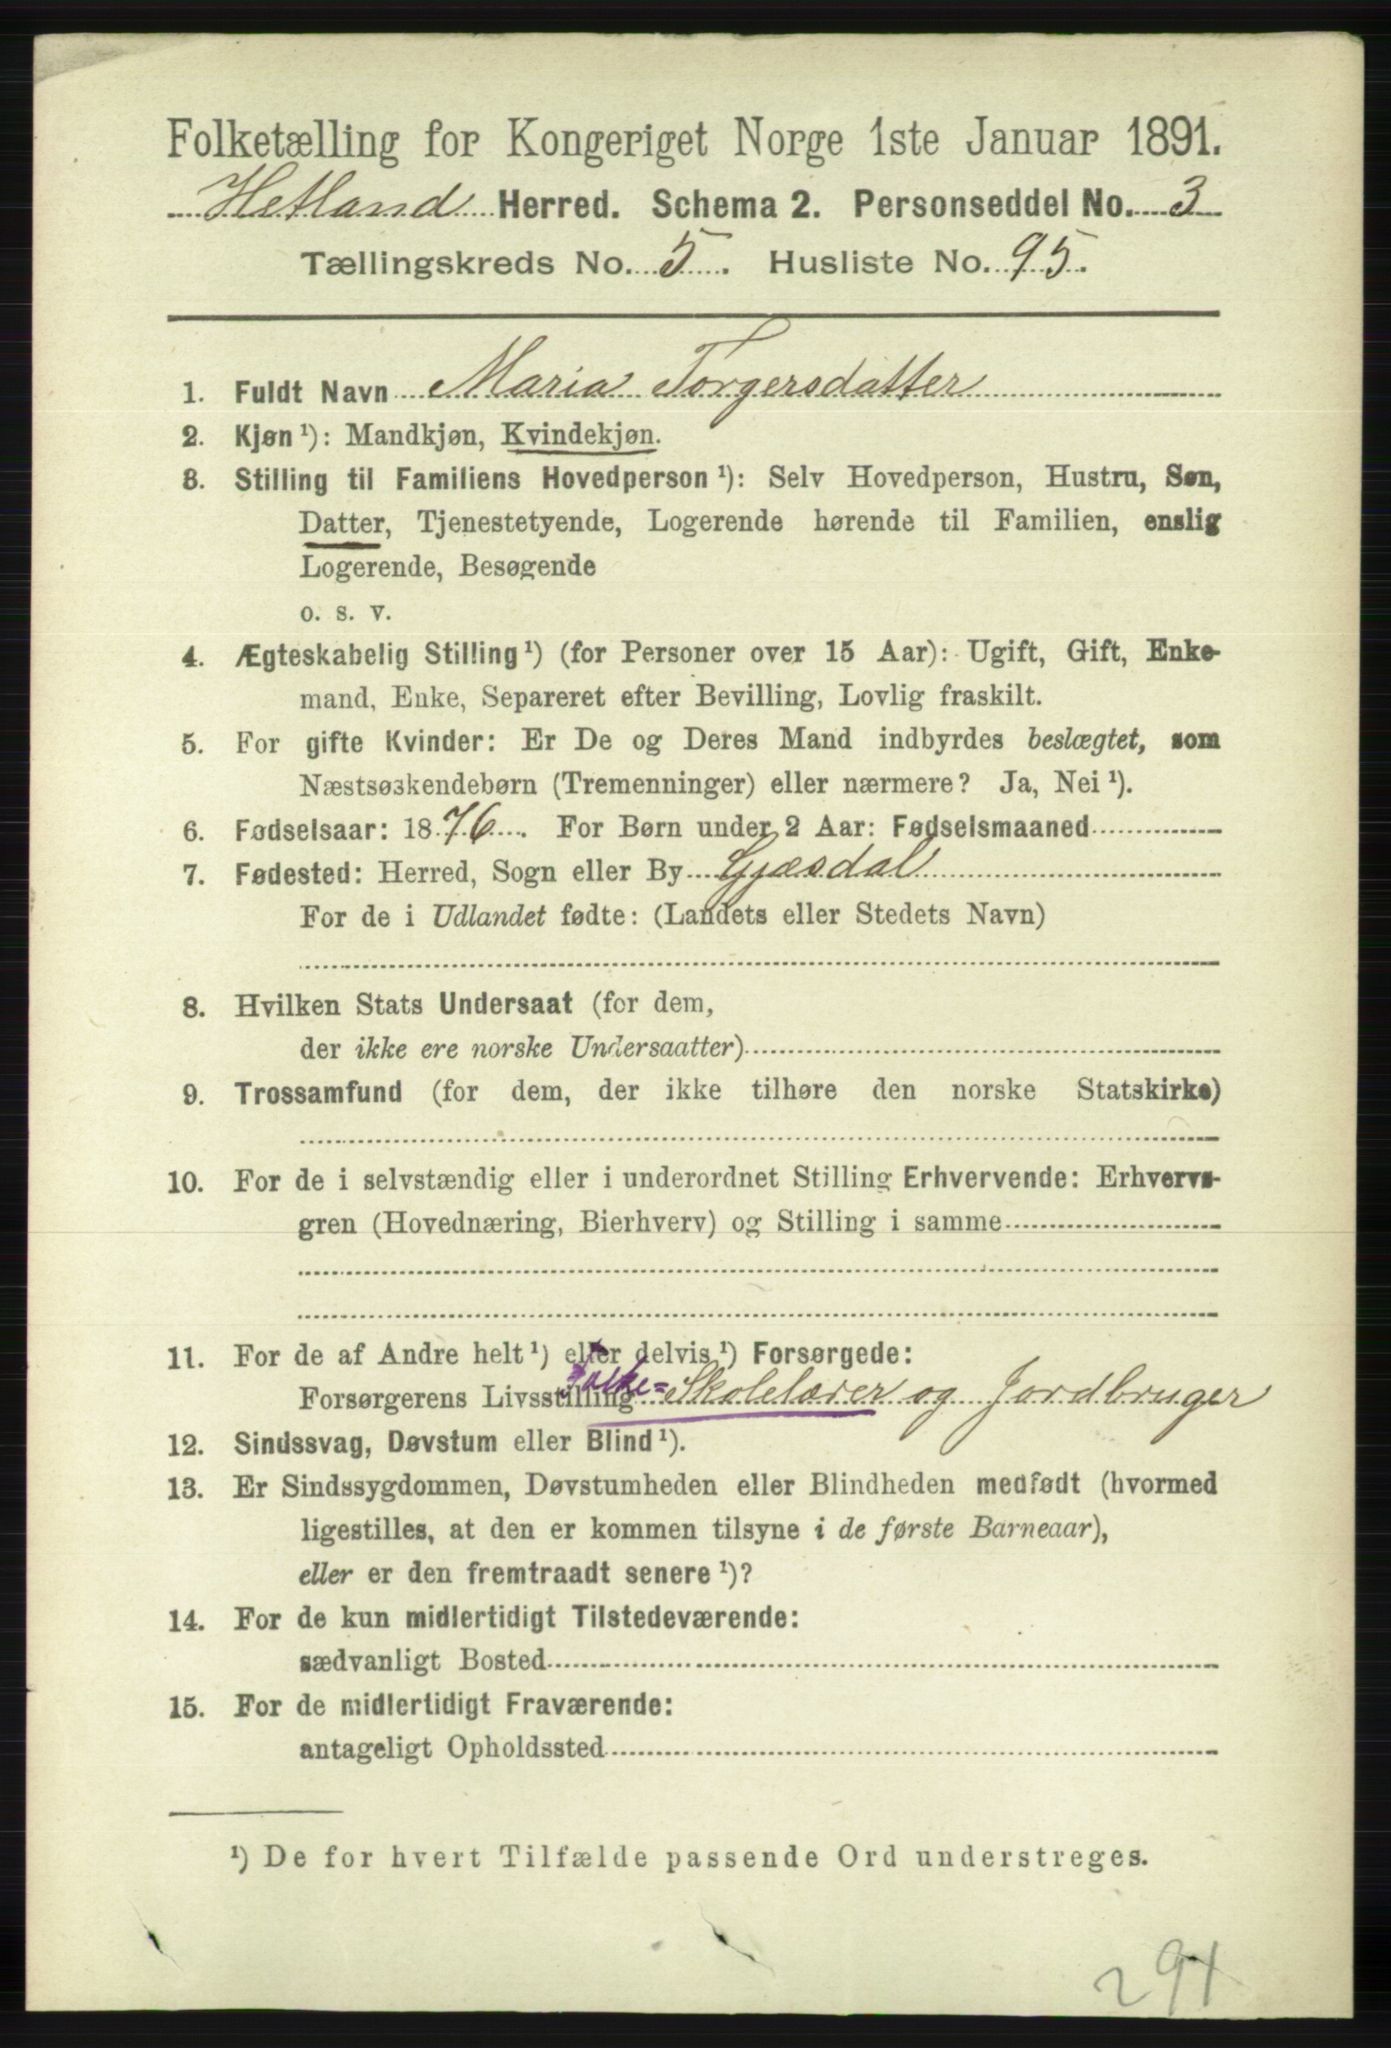 Folketælling for Kongeriget Norge 1ste Januar 1891.
Hetland Herred. Schema 2. Personseddel No. 3
Tællingskreds No. 5. Husliste No. 95.
1. Fuldt Navn Maria Torgersdatter
2. Kjøn ¹): Mandkjøn, Kvindekjøn.
3. Stilling til Familiens Hovedperson ¹): Selv Hovedperson, Hustru, Søn,
Datter, Tjenestetyende, Logerende hørende til Familien, enslig
Logerende, Besøgende
o. s. v.
4. Ægteskabelig Stilling ¹) (for Personer over 15 Aar): Ugift, Gift, Enke-
mand, Enke, Separeret efter Bevilling, Lovlig fraskilt.
5. For gifte Kvinder: Er De og Deres Mand indbyrdes beslægtet, som
Næstsøskendebørn (Tremenninger) eller nærmere? Ja, Nei ¹).
6. Fødselsaar: 1876. For Børn under 2 Aar: Fødselsmaaned
7. Fødested: Herred, Sogn eller By Gjæsdal
For de i Udlandet fødte: (Landets eller Stedets Navn)
8. Hvilken Stats Undersaat (for dem,
der ikke ere norske Undersaatter)
9. Trossamfund (for dem, der ikke tilhøre den norske Statskirke)
10. For de i selvstændig eller i underordnet Stilling Erhvervende: Erhvervs-
gren (Hovednæring, Bierhverv) og Stilling i samme
11. For de af Andre helt ¹) eller delvis ¹) Forsørgede:
Forsørgerens Livsstilling Folke= Skolelærer og Jordbruger
12. Sindssvag, Døvstum eller Blind ¹).
13. Er Sindssygdommen, Døvstumheden eller Blindheden medfødt (hvormed
ligestilles, at den er kommen tilsyne i de første Barneaar),
eller er den fremtraadt senere ¹)?
14. For de kun midlertidigt Tilstedeværende:
sædvanligt Bosted
15. For de midlertidigt Fraværende:
antageligt Opholdssted
¹) De for hvert Tilfælde passende Ord understreges.
291